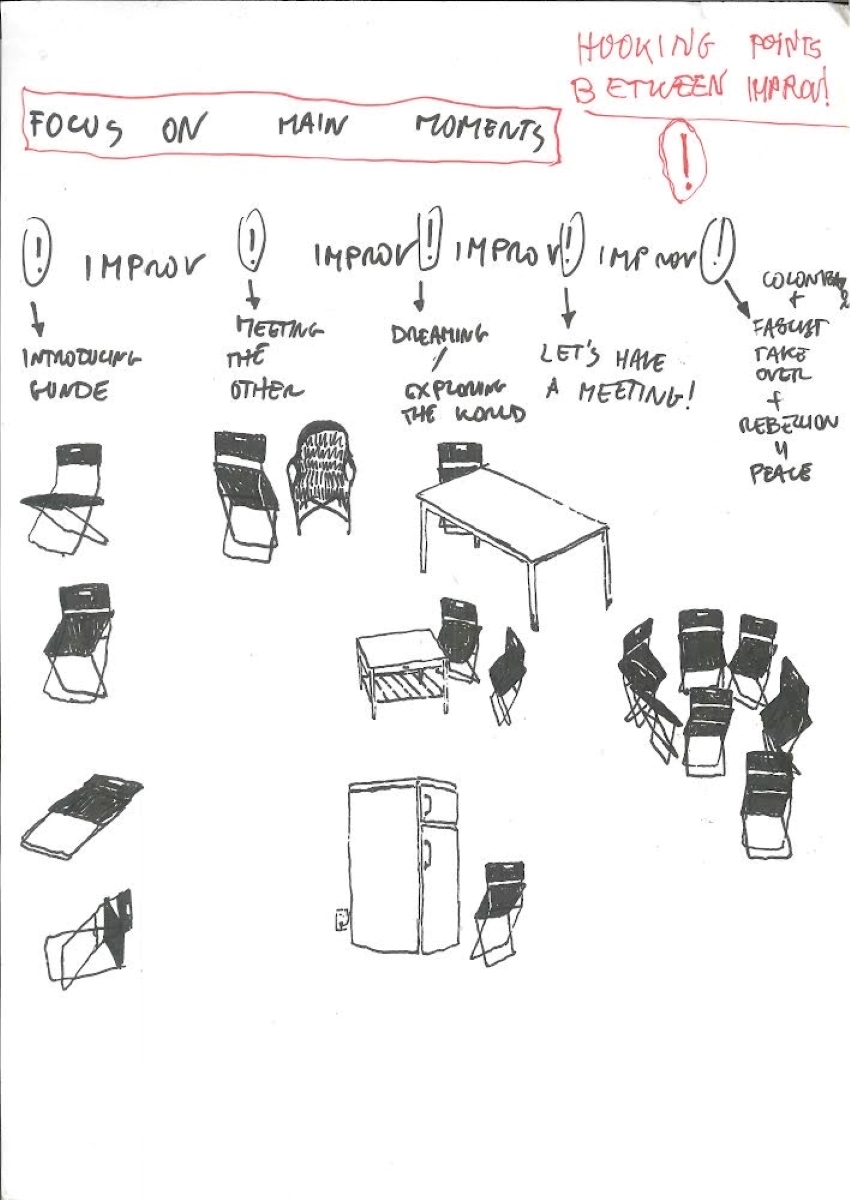 HOOKING POINTS
BETWEEN IMPROV!
!
FOCUS ON MAIN MOMENTS
! IMPROV ! IMPROV ! IMPROV ! IMPROV !
INTRODUCING
GUNDE
MEETING
THE
OTHER
DREAMING
/
EXPLORING
THE WORLD
LET'S HAVE
A MEETING!
+
FASCIST
TAKE
OVER
+
REBELLION
PEACE